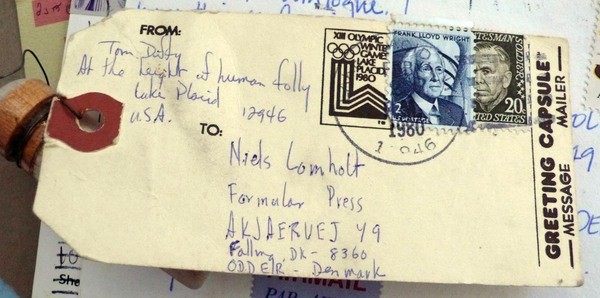 FROM:
Tom
At the height of human folly
Lake Placid
USA. 12946
XIII OLYMPIC
WINTER
GAMES
LAKE
PLACID
1980
FRANK LLOYD WRIGHT
2¢ US POSTAGE
STATESMAN
SOLDIER
20
UNITED STATES
1980
TO:
Niels Lomholt
Formular Press
AKJAERVEJ 49
Falling, DK - 8360
ODDER - Denmark
GREETING CAPSULE
MESSAGE MAILER
MAIL
PAR